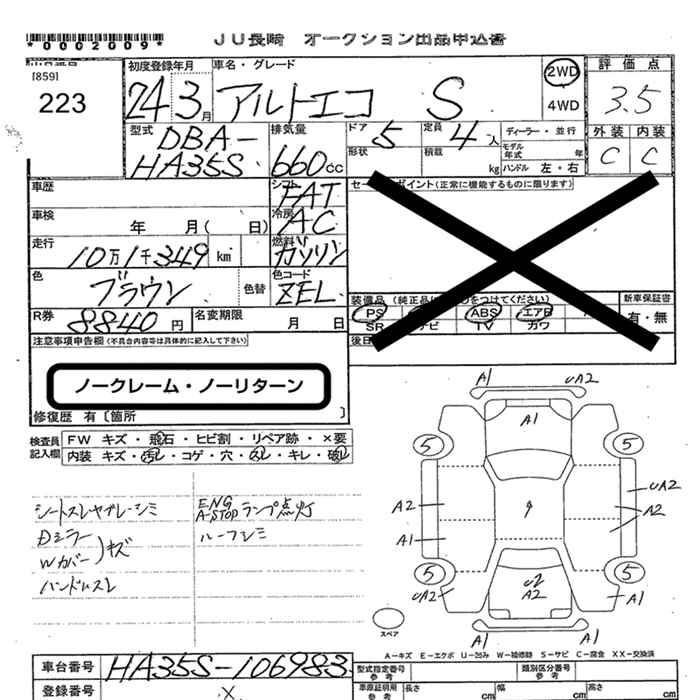 *0002009*
JU長崎 オークション出品申込書
[859]
223
初度登録年月
24 3月
車名・グレード
アルトエコ S
2WD
4WD
評価点
3.5
外装 内装
C C
型式
DBA-
HA35S
排気量
660cc
ドア
5
定員
4人
形状
積載
kg
ディーラー・並行
モデル年式 年
ハンドル 左・右
車歴
シフト
FAT
車検
年 月( 日)
冷房
AC
走行
10万1千349 km
燃料
ガソリン
色
ブラウン
色替
色コード
ZEL
R券
8840円
名変期限
月 日
セールスポイント(正常に機能するものに限ります)
PS
ABS
エアB
SR
ナビ
TV
カワ
新車保証書
有・無
注意事項申告欄(不具合内容等は具体的に記入して下さい)
ノークレーム・ノーリターン
修復歴 有〔箇所 〕
検査員記入欄
FW キズ・飛石・ヒビ割・リペア跡・×要
内装 キズ・汚レ・コゲ・穴・スレ・キレ・破レ
シートスレヤブレ シミ
Dミラー
Wカバー)キズ
ハンドルスレ
ENG
A-STOPランプ点灯
ルーフシミ
A1
UA2
A1
5
5
UA2
A2
A2
A1
9
5
5
UA2
U2
A2
A1
A1
A1
スペア
A-キズ E-エクボ U-凹み W-補修跡 S-サビ C-腐食 XX-交換済
車台番号
HA35S-106983
登録番号
×
型式指定番号
参考
類別区分番号
参考
車庫証明用
参考
長さ
cm
幅
cm
高さ
cm